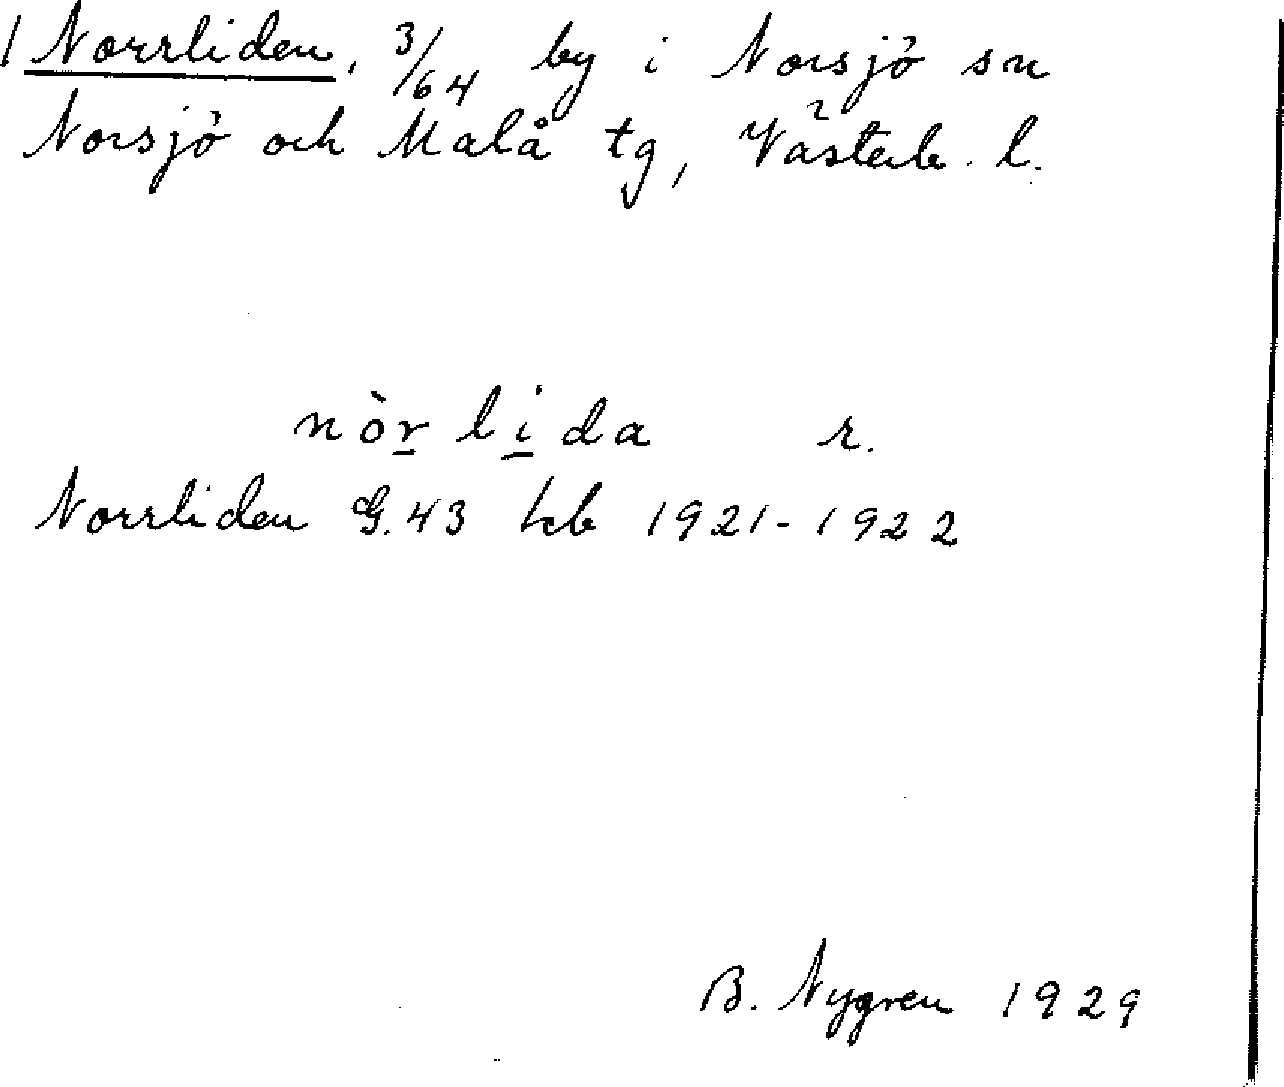 1 Norrliden, 3/64 by i Norsjö sn
Norsjö och Malå tg, Västerb. l.
nòr lida r.
Norrliden G.43 hcb 1921-1922
B. Nygren 1929